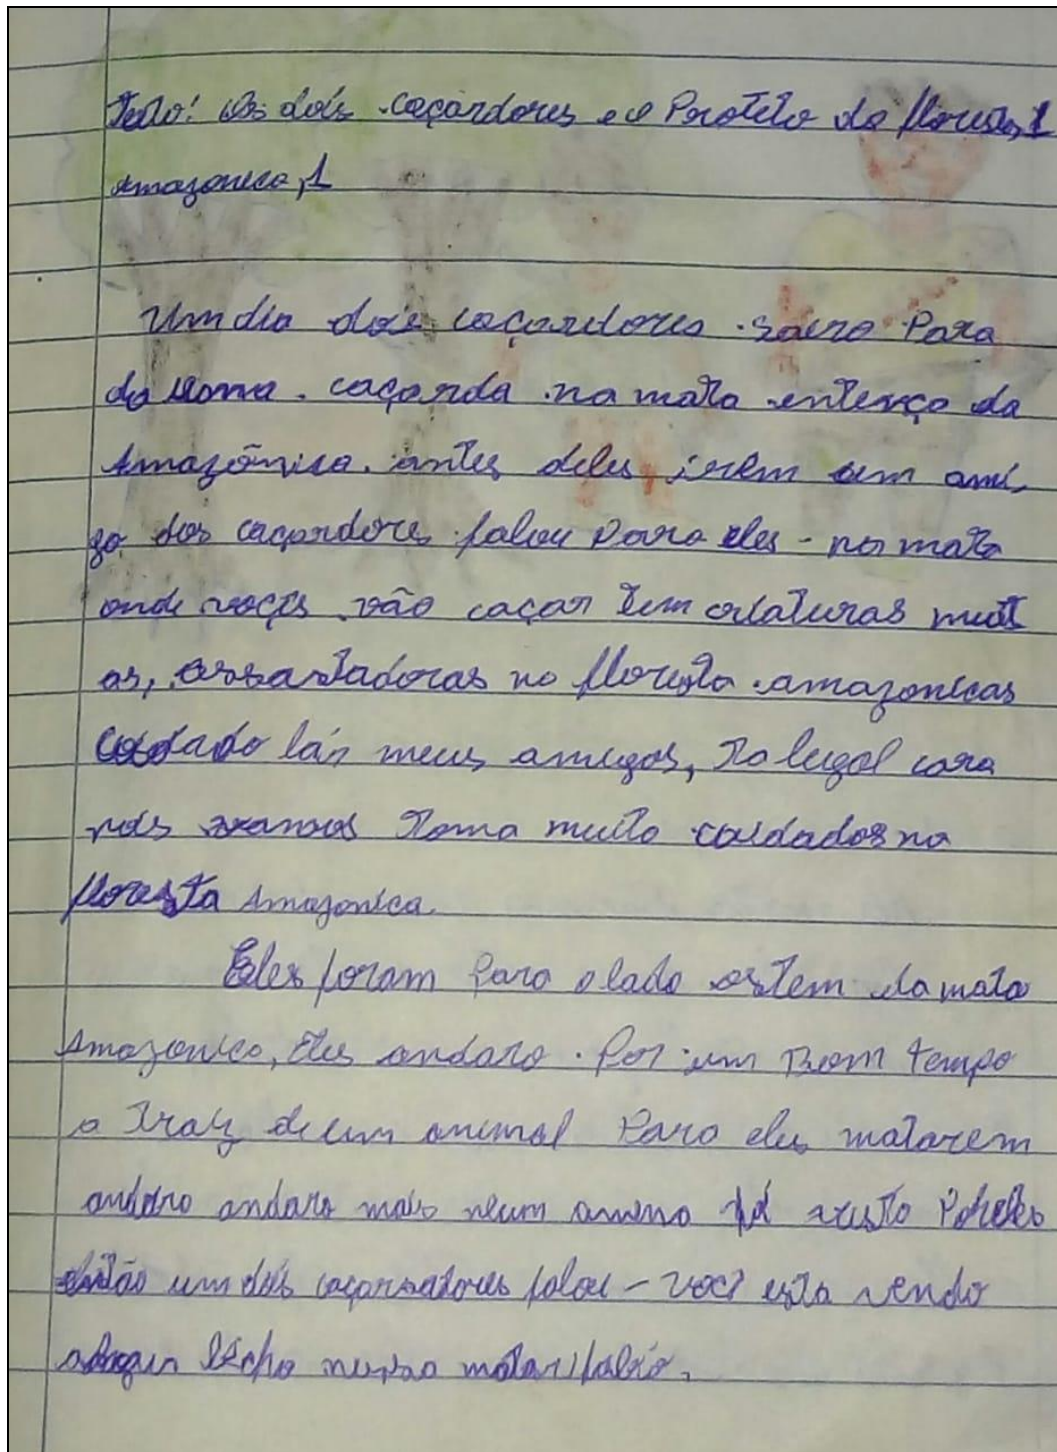 Texto: Os dois caçardores e o Proteto da floresta,
Amazonica,
Um dia dois caçardores sairo Para
da uma caçarda na mata entença da
Amazônica. antes deles irem um ami,
go dos caçardores falou para eles - na mata
onde voçês vão caçar tem criaturas muit
as, assastadoras na floresta amazonicas
cuidado lár meus amigos, Ta legal cara
nós vamos Toma muito cuidados na
floresta Amazonica.
Eles foram para o lado ostem da mata
Amazonica, Eles andaro Por um Bom tempo
a Traiz de um animal Para eles matarem
andaro andaro mais neum animo visto Poreles
então um dos falou - você esta vendo
bicho nessa mata